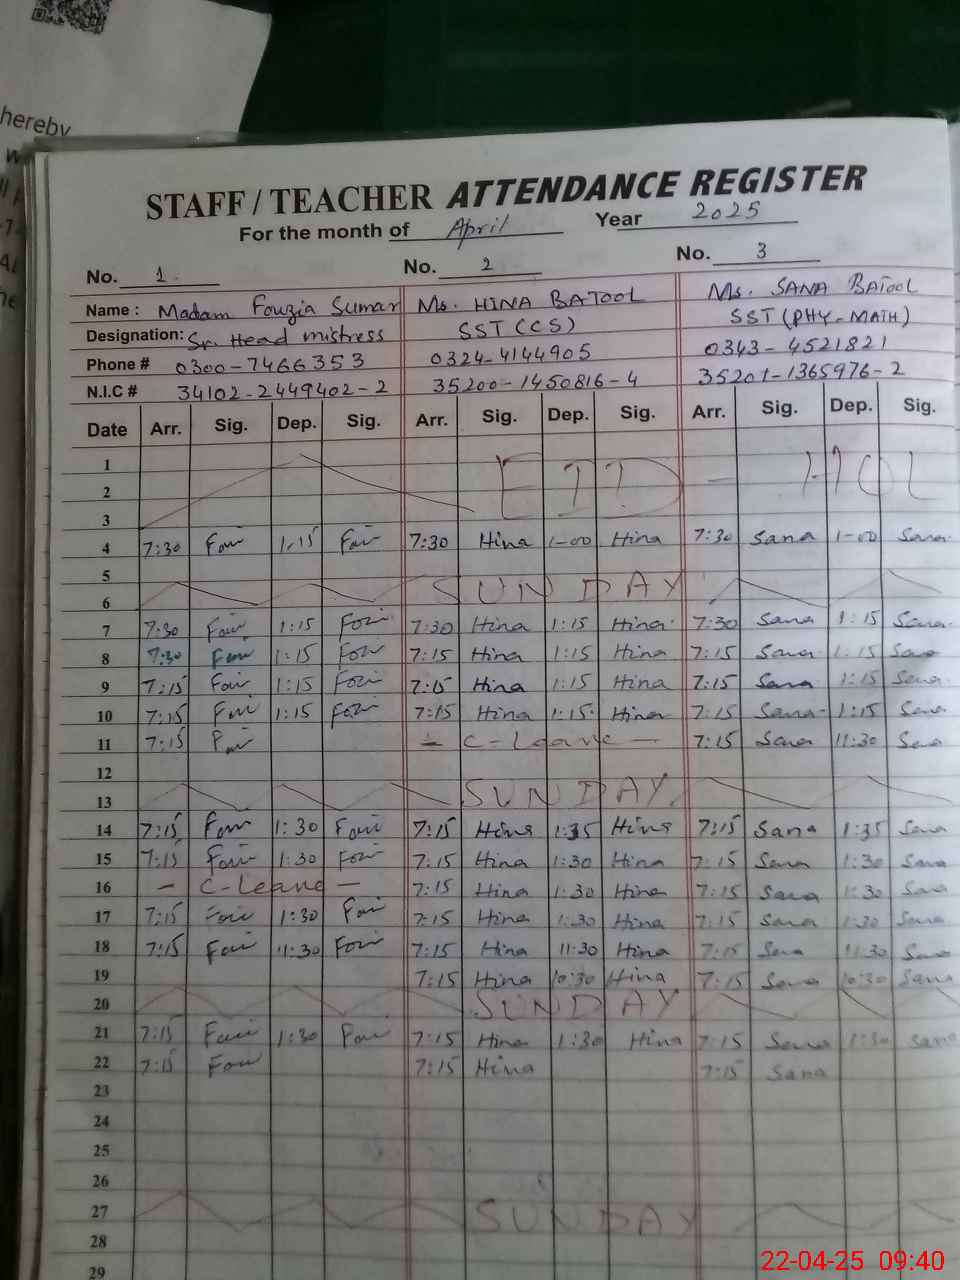 hereby
STAFF / TEACHER ATTENDANCE REGISTER
For the month of April Year 2025
No. 1 No. 2 No. 3
Name : Madam Fouzia Sumar Ms. HINA BATOOL Ms. SANA BATOOL
Designation: Sr. Head mistress SST (CS) SST (PHY-MATH)
Phone # 0300-7466353 0324-4144905 0343-4521821
N.I.C # 34102-2449402-2 35200-1450816-4 35201-1365976-2
Date Arr. Sig. Dep. Sig. Arr. Sig. Dep. Sig. Arr. Sig. Dep. Sig.
1
2 EID - HOL
3
4 7:30 1:15 7:30 Hina 1-00 Hina 7:30 Sana 1-00 Sana
5
6 SUNDAY
7 7:30 1:15 7:30 Hina 1:15 Hina 7:30 Sana 1:15 Sana
8 7:30 1:15 7:15 Hina 1:15 Hina 7:15 Sana 1:15 Sana
9 7:15 1:15 7:15 Hina 1:15 Hina 7:15 Sana 1:15 Sana
10 7:15 1:15 7:15 Hina 1:15 Hina 7:15 Sana 1:15 Sana
11 7:15 - C-Leave - 7:15 Sana 11:30 Sana
12
13 SUNDAY
14 7:15 1:30 7:15 Hina 1:35 Hina 7:15 Sana 1:35 Sana
15 7:15 1:30 7:15 Hina 1:30 Hina 7:15 Sana 1:30 Sana
16 - C-Leave - 7:15 Hina 1:30 Hina 7:15 Sana 1:30 Sana
17 7:15 1:30 7:15 Hina 1:30 Hina 7:15 Sana 1:30 Sana
18 7:15 11:30 7:15 Hina 11:30 Hina 7:15 Sana 11:30 Sana
19 7:15 Hina 10:30 Hina 7:15 Sana 10:30 Sana
20 SUNDAY
21 7:15 1:30 7:15 Hina 1:30 Hina 7:15 Sana 1:30 Sana
22 7:15 7:15 Hina 7:15 Sana
23
24
25
26
27 SUNDAY
28
29
22-04-25 09:40